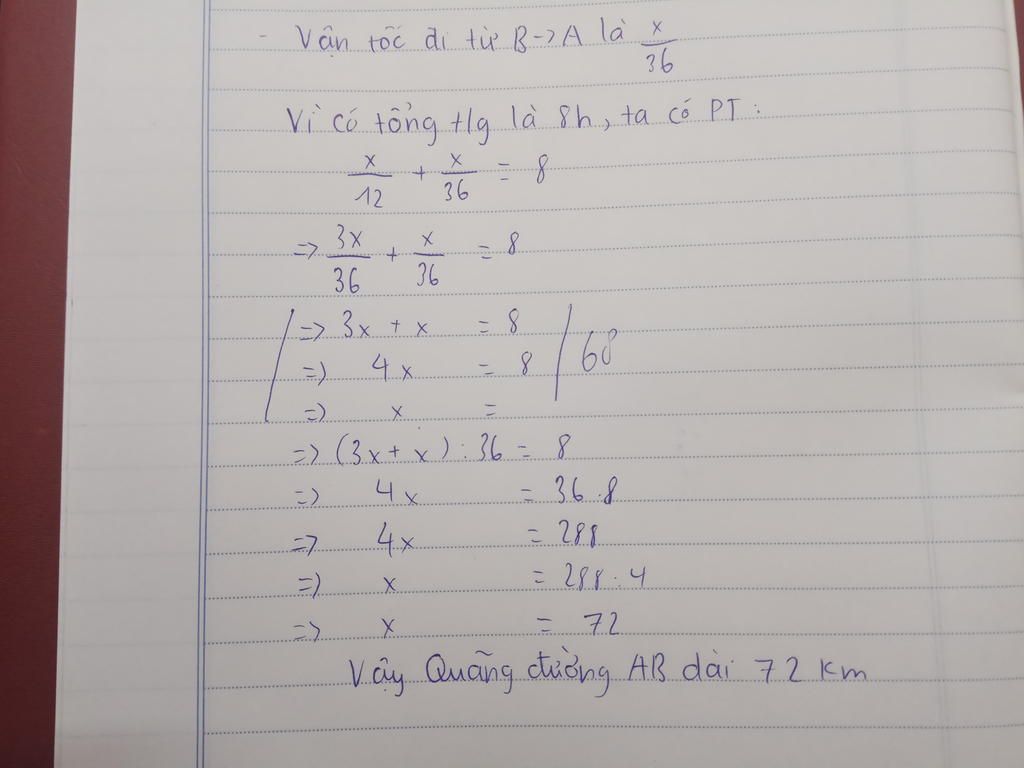 - Vận tốc đi từ B->A là x/36
Vì có tổng t/g là 8h, ta có PT:
x/12 + x/36 = 8
=> 3x/36 + x/36 = 8
=> 3x + x = 8
=> 4x = 8
=> x =
=> (3x + x) : 36 = 8
=> 4x = 36.8
=> 4x = 288
=> x = 288:4
=> x = 72
Vậy Quãng đường AB dài 72 km